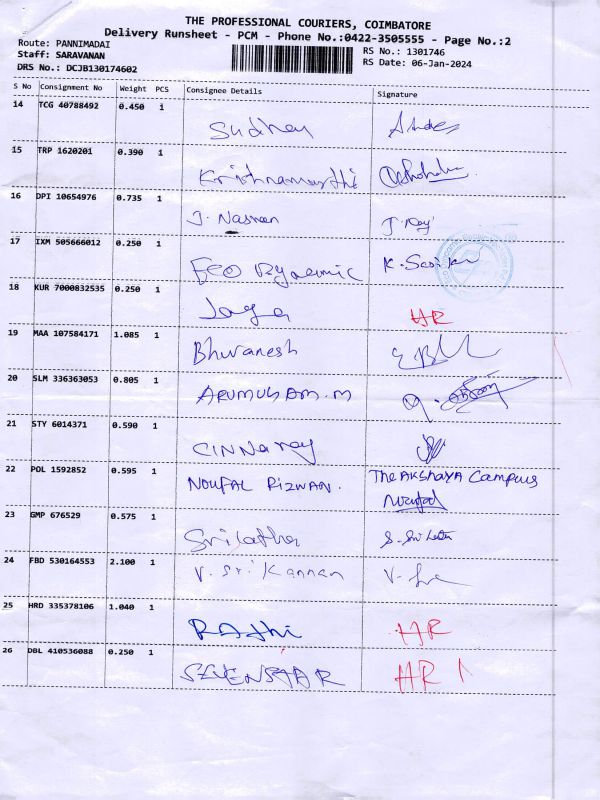 THE PROFESSIONAL COURIERS, COIMBATORE
Delivery Runsheet - PCM - Phone No.:0422-3505555 - Page No.:2
Route: PANNIMADAI RS No.: 1301746
Staff: SARAVANAN RS Date: 06-Jan-2024
DRS No.: DCJB130174602
S No Consignment No Weight PCS Consignee Details Signature
14 TCG 40788492 0.450 1
Sudhey
15 TRP 1620201 0.390 1
Krishnamurthi
16 DPI 10654976 0.735 1
J. Nasreen J. Ray
17 IXM 505666012 0.250 1
Eco Dynamic K. Sasikur
18 KUR 7000832535 0.250 1
Jaga HR
19 MAA 107584171 1.085 1
Bhuvanesh
20 SLM 336363053 0.805 1
ARUMUGAM.M
21 STY 6014371 0.590 1
CINNaray
22 POL 1592852 0.595 1
NOUFAL RIZWAN. The AKSHAYA Campus
Noufal
23 GMP 676529 0.575 1
Srilatha
24 FBD 530164553 2.100 1
V. Sri Kannan
25 HRD 335378106 1.040 1
RAThi HR
26 DBL 410536088 0.250 1
SEVENSTAR HR